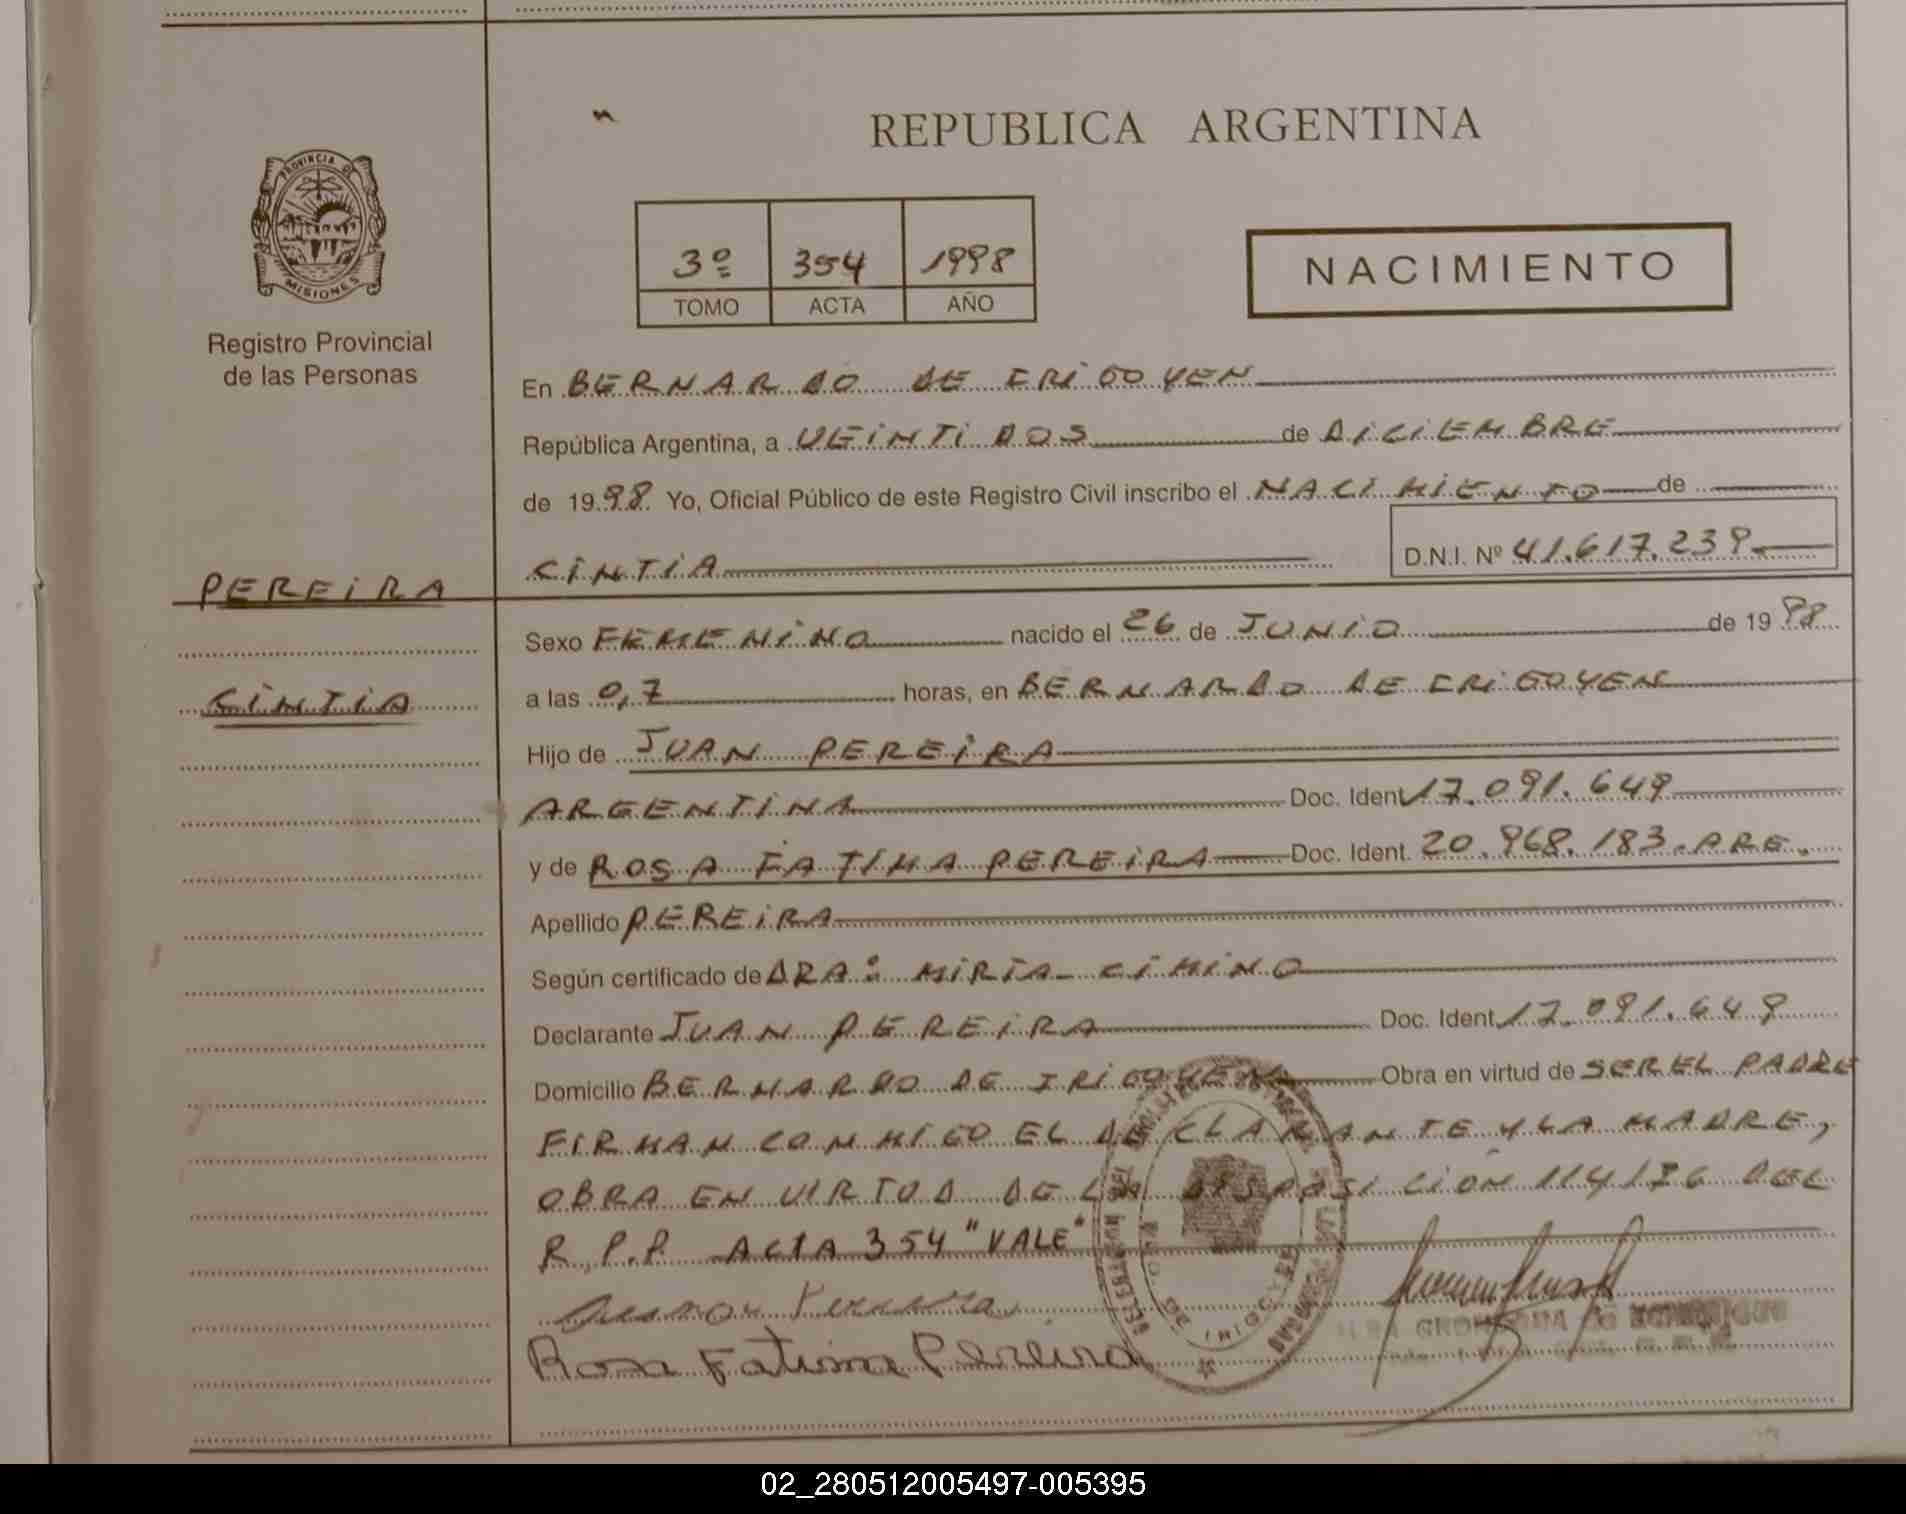 REPUBLICA ARGENTINA
PROVINCIA DE
MISIONES
Registro Provincial
de las Personas
3º 354 1998
TOMO ACTA AÑO
NACIMIENTO
En BERNARDO DE IRIGOYEN
República Argentina, a VEINTIDOS de DICIEMBRE
de 1998 Yo, Oficial Público de este Registro Civil inscribo el NACIMIENTO de
CINTIA D.N.I. Nº 41.617.239
PEREIRA
CINTIA
Sexo FEMENINO nacido el 26 de JUNIO de 1998
a las 0,7 horas, en BERNARDO DE IRIGOYEN
Hijo de JUAN PEREIRA
ARGENTINA Doc. Ident 17.091.649
y de ROSA FATIMA PEREIRA Doc. Ident. 20.968.183. ARG.
Apellido PEREIRA
Según certificado de DRA: MIRTA CIMINO
Declarante JUAN PEREIRA Doc. Ident 17.091.649
Domicilio BERNARDO DE IRIGOYEN Obra en virtud de SER EL PADRE
FIRMAN CONMIGO EL DECLARANTE Y LA MADRE,
OBRA EN VIRTUD DE LA DISPOSICIÓN 114/96 DEL
R.P.P. ACTA 354 "VALE"
Pereira
Rosa Fatima Pereira
02_280512005497-005395